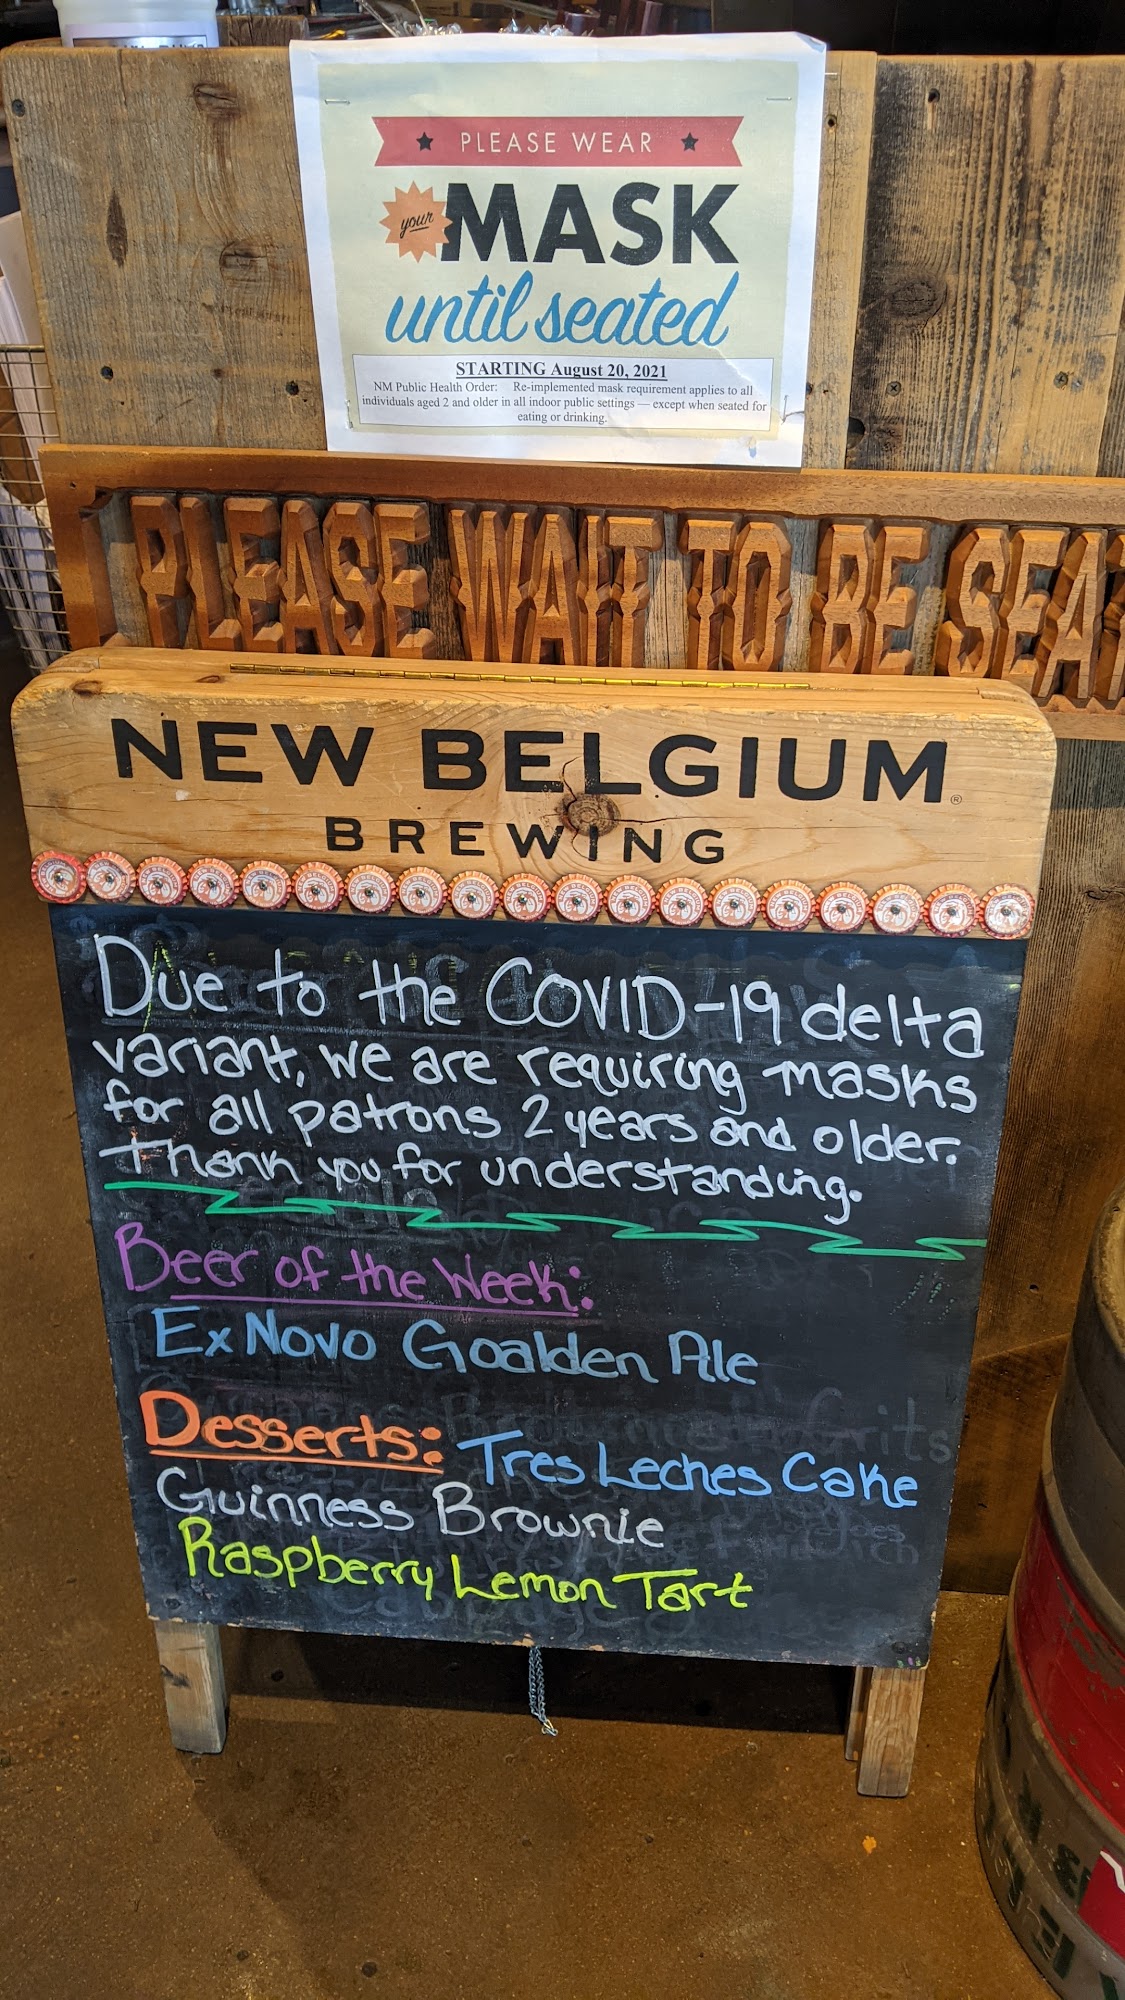 PLEASE WEAR
your MASK
until seated
STARTING August 20, 2021
NM Public Health Order: Re-implemented mask requirement applies to all
individuals aged 2 and older in all indoor public settings — except when seated for
eating or drinking.
PLEASE WAIT TO BE SEA
NEW BELGIUM®
BREWING
Due to the COVID-19 delta
variant, we are requiring masks
for all patrons 2 years and older.
Thank you for understanding.
Beer of the Week:
Ex Novo Goalden Ale
Desserts: Tres Leches Cake
Guinness Brownie
Raspberry Lemon Tart